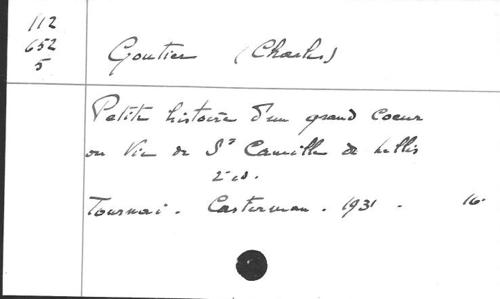 112
652
5
Goutier (Charles)
Petite histoire d'un grand coeur
ou Vie de St Camille de Lellis
2e éd.
Tournai. Casterman. 1931. 16.